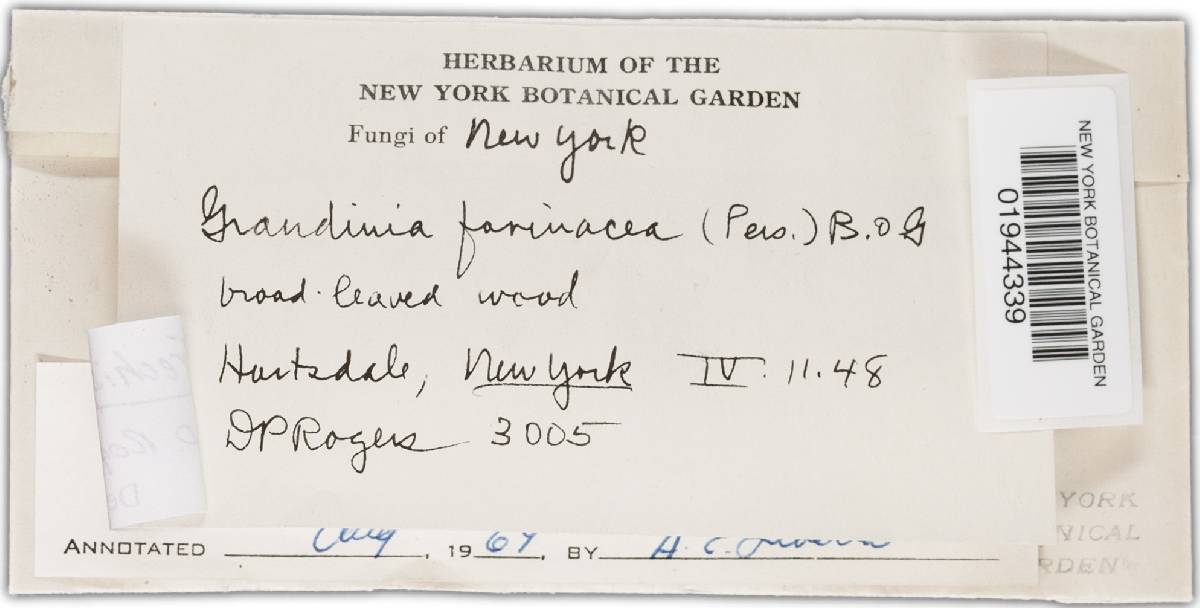 HERBARIUM OF THE
NEW YORK BOTANICAL GARDEN
Fungi of New York
Grandinia farinacea (Pers.) B. & G
broad-leaved wood
Hartsdale, New York IV. 11.48
DPRogers 3005
NEW YORK BOTANICAL GARDEN
01944339
ANNOTATED Aug, 1967, BY H. C.
YORK
NICAL
RDEN